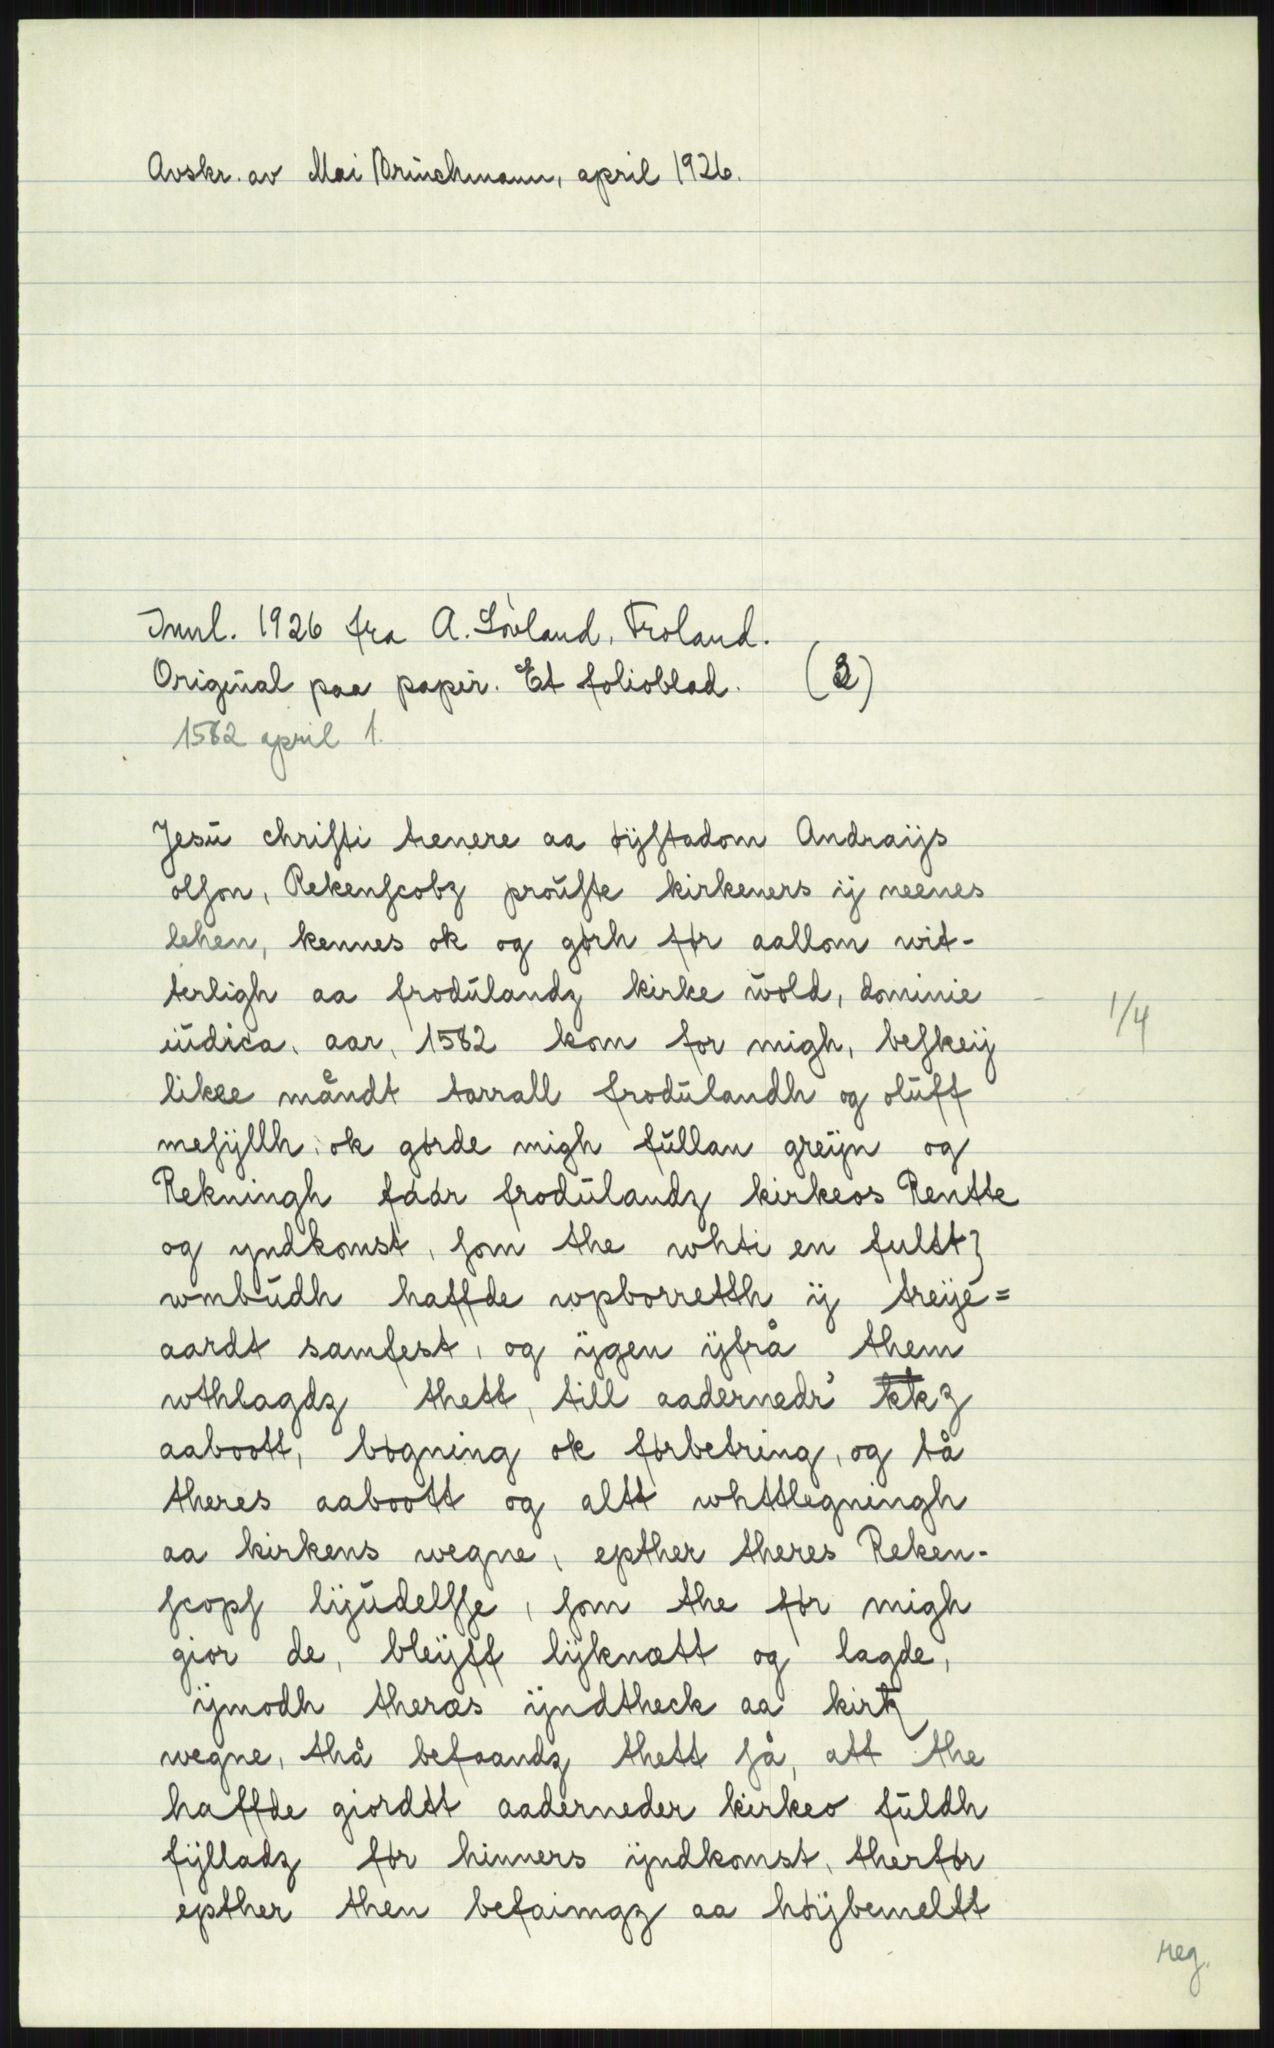 Avskr. av Mai Brinchmann, april 1926.
Innl. 1926 fra A. Løvland, Froland.
Original paa papir. Et folioblad. (2)
1582 april 1.
Jesu chrifti tienere aa øÿftadom Andraijs
olfon, Rekenfcobz proufte kirkeners ij neenes
lehen, kennes ok og gørh før aallom wit-
terligh aa frodulandz kirke wold, dominie
iudica, aar, 1582 kom for migh, befkeij
1/4
likee måndt tarrall frodulandh og oluff
mefÿllh, ok gørde migh fullan greijn og
Rekningh føør frodulandz kirkeos Rentte
og yndkomst, fom the whti en fultt
wmbudh haffde wpborretth ij treije=
aardt samfest, og ijgen ijfrå them
wthlagdz thett, till aadernedr' kkz
aaboott, bøgning ok førbetring, og så
theres aaboott og altt whttlegningh
aa kirkens wegne, epther theres Reken-
fcopf lijudelffe, fom the før migh
gior de, bleijff lijknætt og lagde,
ijmodh theræs ijndtheck aa kirkz
wegne, thå befaandz thett få, att the
haffde giordtt aaderneder kirkeo fuldh
fijlladz før hinners ijndkomst, therfør
epther then befaimgz aa høijbemeltt
reg.